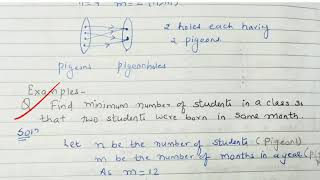 2 holes each having
2 pigeons
pigeons pigeonholes
Examples-
Q. Find minimum number of students in a class so
that two students were born in same month.
Soln
Let n be the number of students (Pigeons)
m be the number of months in a year (Pig
As m=12